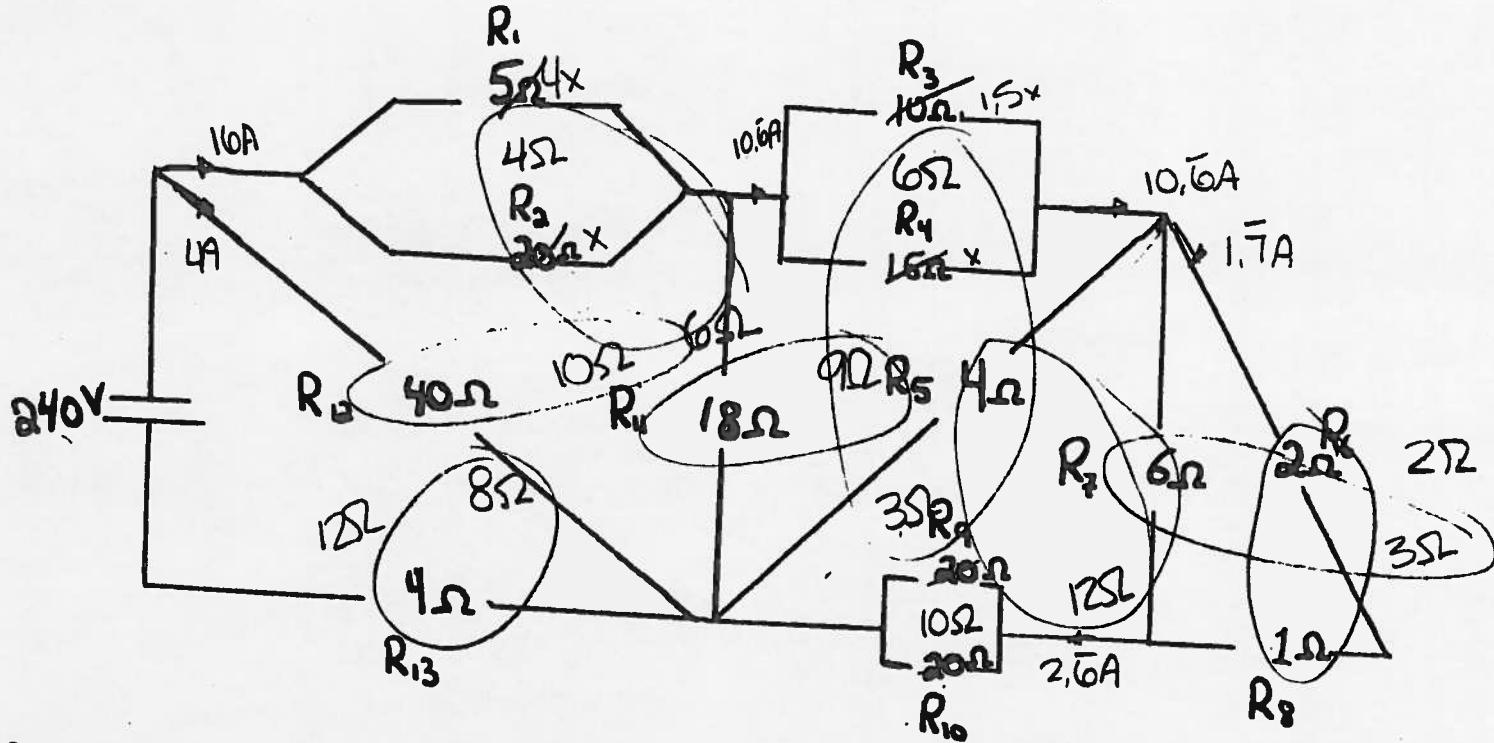 R₁
5Ω 4x
16A
4Ω
R₂
20Ω x
4A
10,6̄A
R₃
10Ω 1,5x
6Ω
R₄
15Ω x
10,6̄A
1,7̄A
240V
R₁₂
40Ω
10Ω
6Ω
R₁₁
18Ω
9Ω
R₅
4Ω
R₇
6Ω
2Ω
R₆
2Ω
3Ω
12Ω
8Ω
4Ω
R₁₃
3Ω
R₉
20Ω
10Ω
20Ω
R₁₀
12Ω
2,6̄A
1Ω
R₈